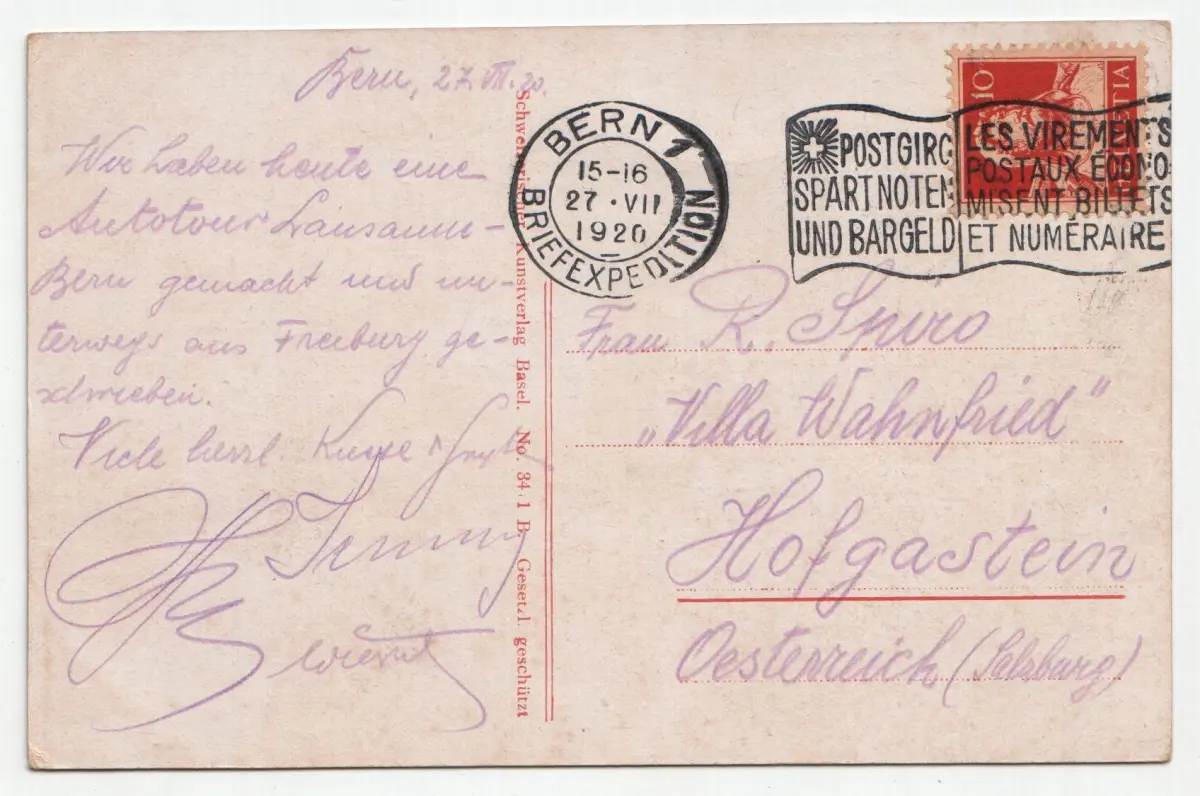 Bern, 27. VII. 20.
Wir haben heute eine
Autotour Lausanne-
Bern gemacht und un-
terwegs aus Freiburg ge-
schrieben.
Viele herzl. Küsse
Jenny
Schweizerischer Kunstverlag Basel. No. 341 B. Gesetzl. geschützt
BERN 1
15-16
27 · VII
1920
BRIEFEXPEDITION
POSTGIRO
SPART NOTEN
UND BARGELD
LES VIREMENTS
POSTAUX ÉCONO-
MISENT BILLETS
ET NUMÉRAIRE
10
HELVETIA
Frau R. Spiro
„Villa Wahnfried"
Hofgastein
Oesterreich (Salzburg)